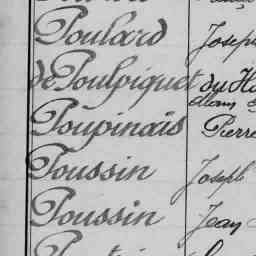 Poulard Joseph
de Poulpiquet du Ha
Poupinais Pierre
Poussin Joseph
Poussin Jean